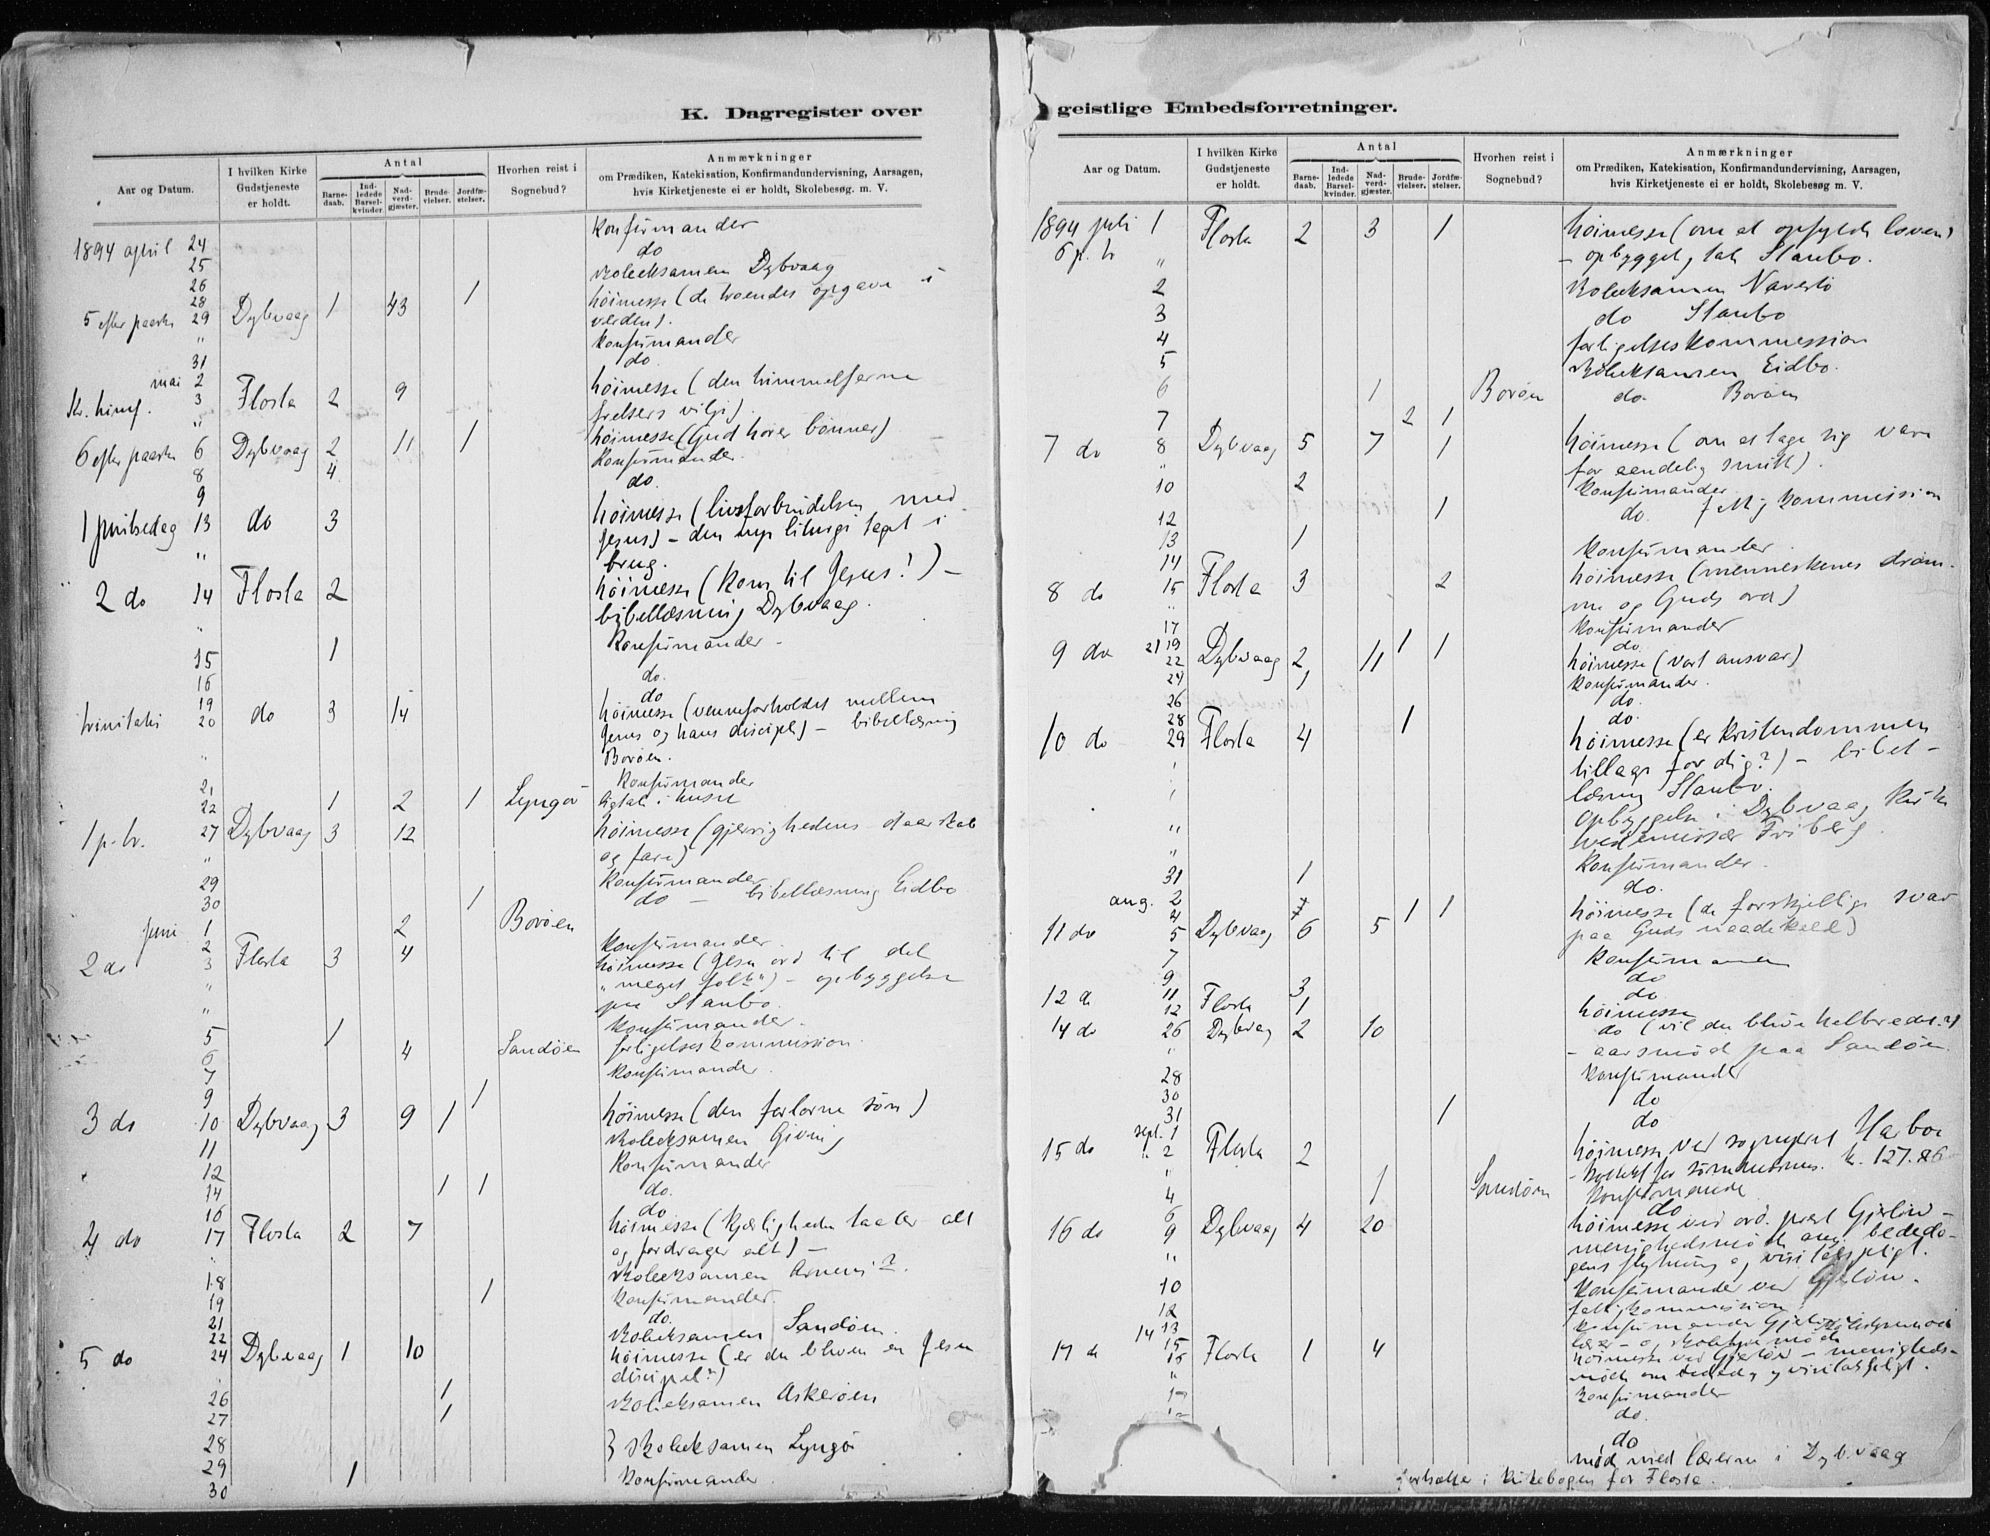 K. Dagregister over
Aar og Datum.
I hvilken Kirke Gudstjeneste er holdt.
Antal
Barne-daab.
Ind-ledede Barsel-kvinder
Nad-verd-gjæster.
Brude-vielser.
Jordfæ-stelser.
Hvorhen reist i Sognebud?
Anmærkninger
om Prædiken, Katekisation, Konfirmandundervisning, Aarsagen,
hvis Kirketjeneste ei er holdt, Skolebesøg. m. V.
konfirmander
1894 april 24 do
25 skoleeksamen Dybvaag
26
28 1 høimesse (de troendes opgave i
5 efter paaske 29 Dybvaag 1 43 verden).
" konfirmander
31 do
mai 2 høimesse (den himmelfarne
Kr. himf. 3 Flosta 2 9 frelsers vilje)
"
6 efter paaske 6 Dybvaag 2 11 1 høimesse (Gud hører bønner)
8 4 konfirmander
9 do.
1 pintsedag 13 do 3 høimesse (livsforbindelsen med
" Jesus) – den nye liturgi taget i
brug.
2 do 14 Flosta 2 høimesse (kom til Jesus!) –
" bibellæsning Dybvaag.
15 1 konfirmander
16 do.
19 do
trinitatis 20 do 3 14 høimesse (venneforholdet mellem
Jesus og hans discipel) – bibellæsning
" Borøen.
21 konfirmander
22 1 2 1 Lyngør ligtale i huset
1 p. tr. 27 Dybvaag 3 12 høimesse (gjerrighedens daarskab
" og fare)
29 konfirmander
30 1 do – bibellæsning Eidbo
juni 1 2 Borøen
2 konfirmander
2 do 3 Flosta 3 4 høimesse (Jesu ord til det
" "meget folk") – opbyggelse
" paa Staubo.
5 1 konfirmander.
6 4 Sandøen forligelseskommission
7 konfirmander.
9 1
3 do 10 Dybvaag 3 9 1 høimesse (den forlorne søn)
11 skoleeksamen Gjeving
12 konfirmander
14 1 1 do.
16 do
4 do 17 Flosta 2 7 høimesse (kjærligheden taaler alt
" og fordrager alt) –
18 skoleeksamen
19 1 konfirmander.
21 do.
22 skoleeksamen Sandøen.
5 do 24 Dybvaag 1 10 høimesse (er du bleven en Jesu
discipel?)
26 1 skoleeksamen Askerøen
27 1
28 } skoleeksamen Lyngør
29 1
30 konfirmander
geistlige Embedsforretninger.
Aar og Datum.
I hvilken Kirke Gudstjeneste er holdt.
Antal
Barne-daab.
Ind-ledede Barsel-kvinder.
Nad-verd-gjæster.
Brude-vielser.
Jordfæ-stelser.
Hvorhen reist i Sognebud?
Anmærkninger
om Prædiken, Katekisation, Konfirmandundervisning, Aarsagen,
hvis Kirketjeneste ei er holdt, Skolebesøg m. V.
1894 juli 1 Flosta 2 3 1 høimesse (om at opfylde loven)
6 p. tr " – opbyggel, tale Staubo.
2 skoleeksamen Navestø
3 do Staubo
4 forligelseskommission
5 skoleeksamen Eidbo.
6 1 Borøen do. Borøen
7 2 1
7 do 8 Dybvaag 5 7 1 høimesse (om at tage sig vare
" for aandelig smitte).
10 2 konfirmander
12 1 do. fattigkommission
13 1
14 konfirmander
8 do 15 Flosta 3 2 høimesse (menneskenes drøm-
" me og Guds ord)
17 konfirmander
19 1 do.
9 do 21 22 Dybvaag 2 11 1 høimesse (vort ansvar)
24 1 konfirmander.
26 do.
28 1 do.
10 do 29 Flosta 4 høimesse (er kristendommen
tillags for dig?) – bibel-
læsning Staubo.
" opbyggelse i Dybvaag kirke
" ved emissær Friberg.
konfirmander.
31 1 do.
aug. 2
4 1 1 høimesse (de forskjellige svar
11 do 5 Dybvaag 6 5 paa Guds naadekald)
7 konfirmander
9 do
11 3 do
12 do 12 Flosta 1 høimesse
14 do 26 Dybvaag 2 10 do (vil du blive helbredet?)
" – aarsmøde paa Sandøen.
28 konfirmander
30 do
31 1 do
sept. 1 høimesse ved sogneprest Harboe
15 do " 2 Flosta 2 – kollekt for sømandsmis. k. 127.86
" 1 Sandøen konfirmande
4 do
6 høimesse ved ord. prest Gjerløw –
16 do 9 Dybvaag 4 20 menighedsmøde ang. bededa-
" gens flytning og visitatspligt.
10 konfirmander ved Gjerløw.
12 fattigkommission
14 13 konfirmander
17 do 15 16 Flosta 1 4 høimesse ved Gjerløw – menigheds-
" møde om bededag og visitatspligt.
konfirmander
do.
do
møde med lærerne i Dybvaag
fortsættes i kirkebogen for Flosta.